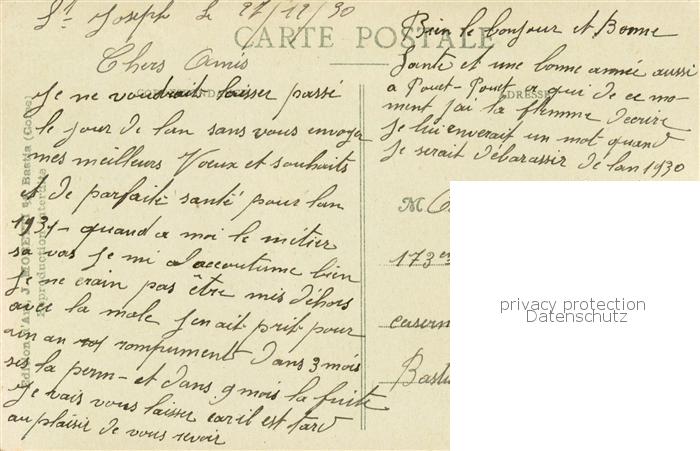 St Joseph le 27/12/30
CARTE POSTALE
Chers Amis
CORRESPONDANCE
Je ne voudrait laisser passé
le jour de lan sans vous envoyer
mes meilleurs Voeux et souhaits
et de parfaite santé pour lan
1931 - quand a moi le métier
sa vas je mi accoutume bien
Je ne crain pas être mis dehors
avec la mole jen ait prit pour
un an rompument dans 3 mois
ses la perm - et dans 9 mois la fuite
Je vais vous laisser car il est tard
au plaisir de vous revoir
Bien le bonjour et Bonne
Santé et une bonne année aussi
ADRESSE
a Pouet-Pouet a qui de ce mo-
ment jai la flemme decrire
Je lui enverait un mot quand
Je serait débarassir de lan 1930
M
173e
casern
Bastia
Bastia (Corse)
Reproduction interdite
privacy protection
Datenschutz